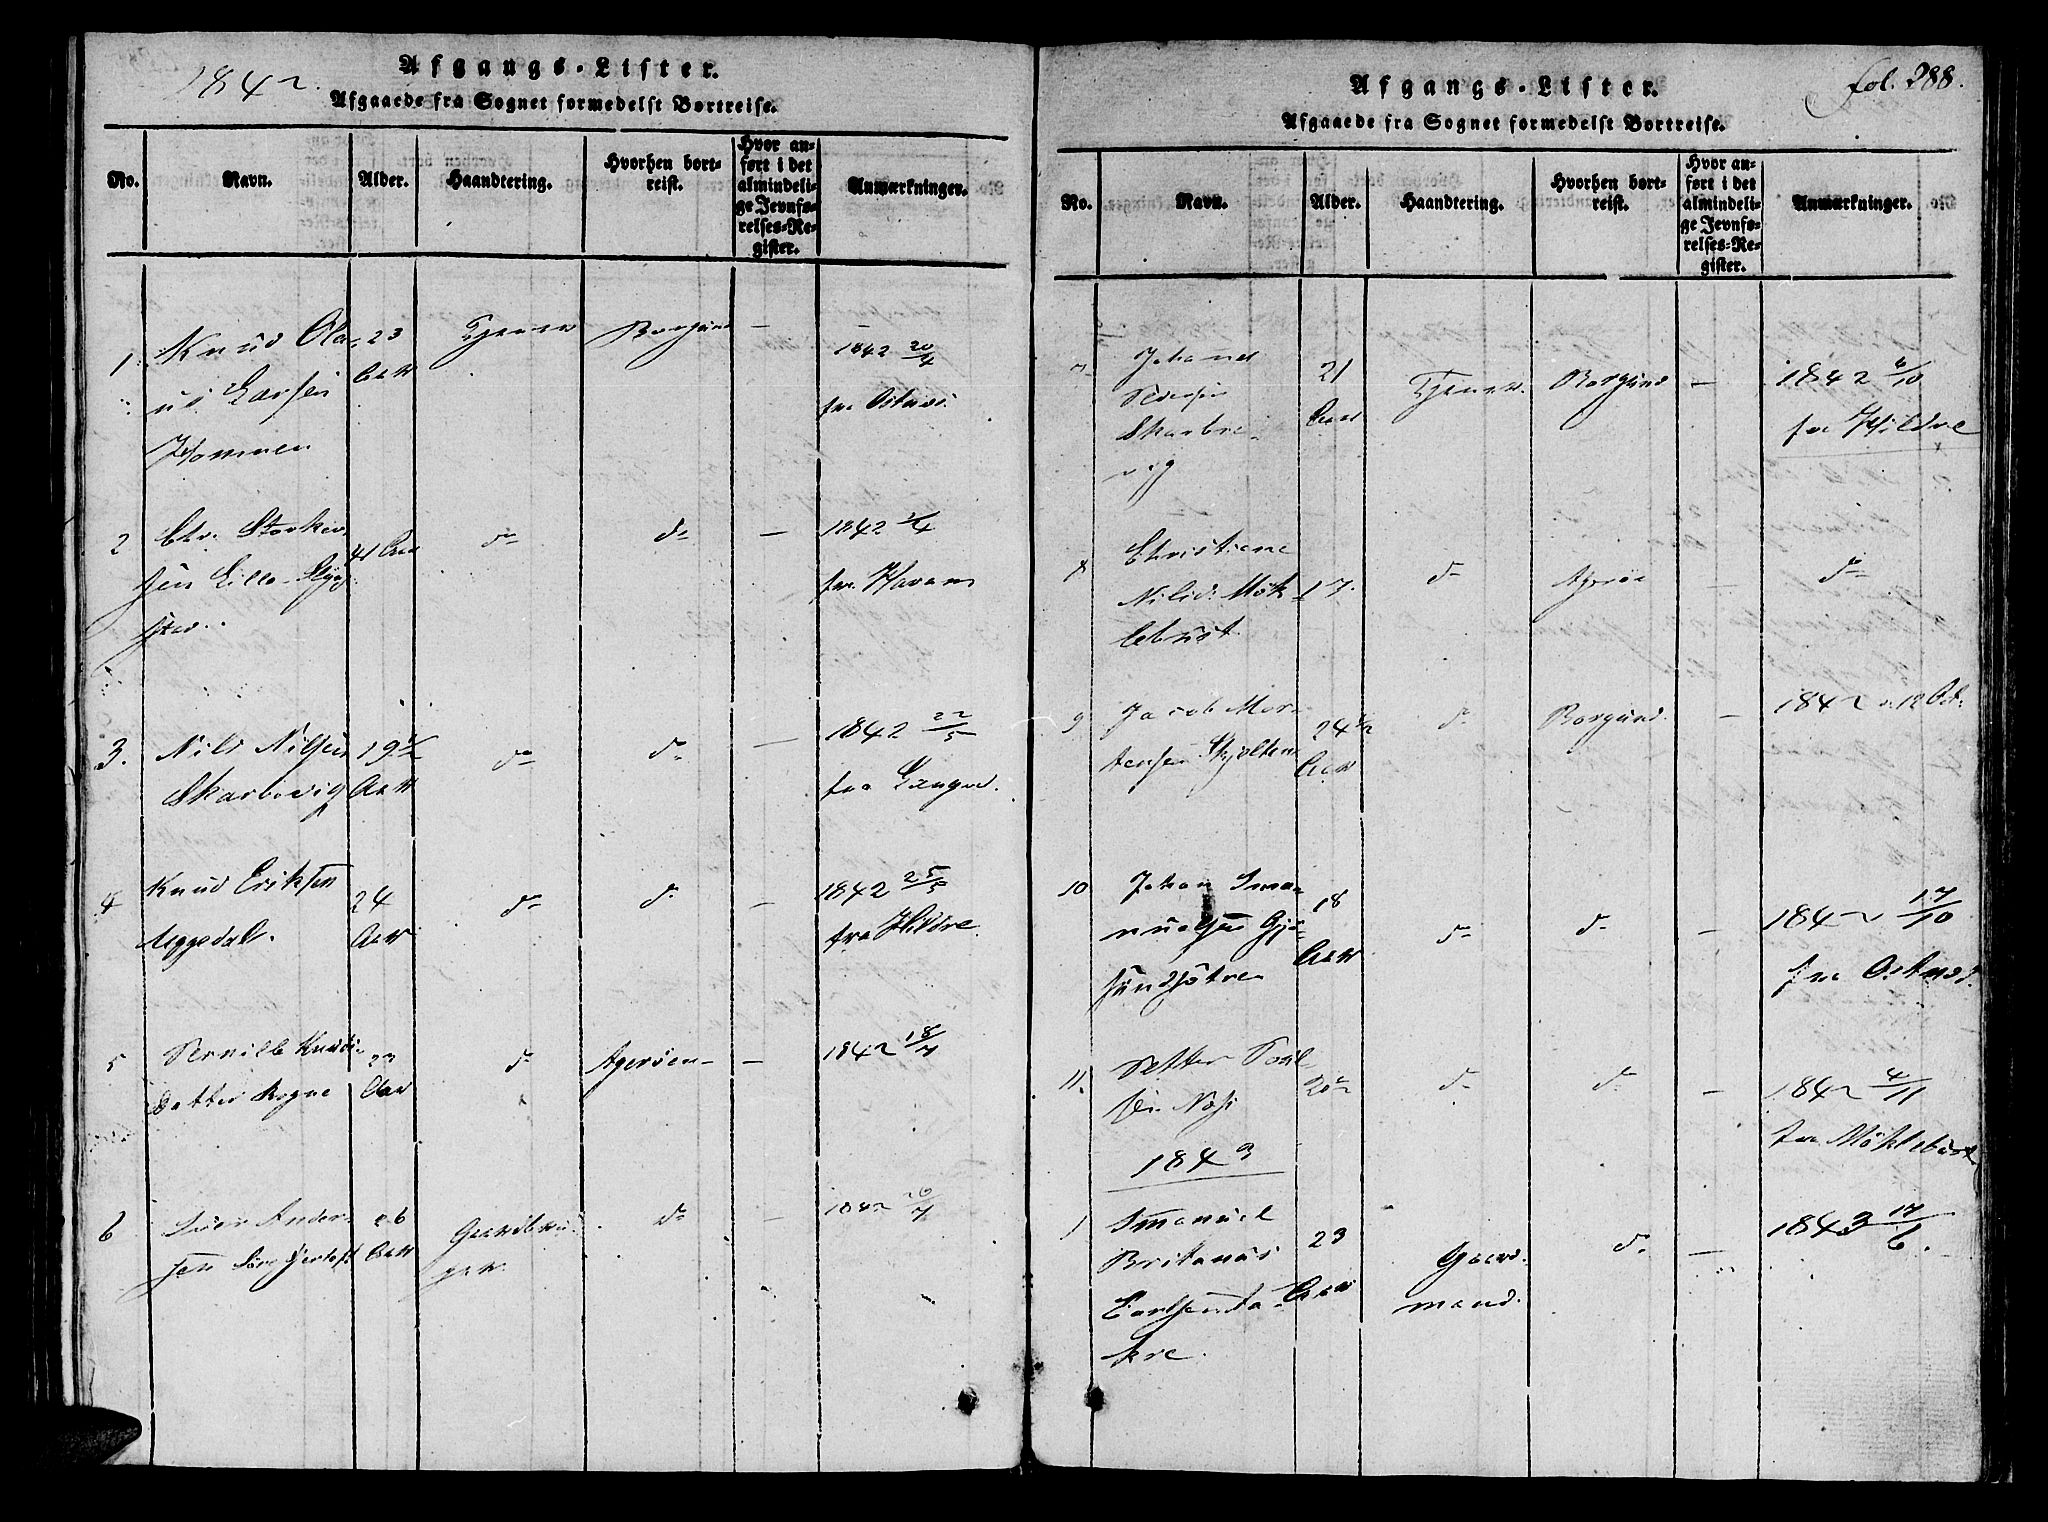 1842.
Afgangs-Lister.
Afgaaede fra Sognet formedelst Bortreise.
No.
Navn.
Alder.
Haandtering.
Hvorhen bort-
reist.
Hvor an-
ført i det
almindeli-
ge Jevnfø-
relses-Re-
gister.
Anmærkninger.
1
Knud Ola-
us Larsen
Hammen
23
Aar
Tjener
Borgund
—
1842 20/4
fra Ostnæs
2
Chr.
sen Lille-
41 Aar
do
do
—
1842
fra Haram
3.
Nils Nilsen
Skarbøvig
19 1/2
Aar
do
do
—
1842 22/5
fra
4
Knud Eriksen
Uggedal.
24
Aar
do
do
—
1842 25/5
fra Hildre.
5
Pernille Knuds-
datter Rogne
23
Aar
do
Agerøen
—
1842 18/7
6
Iver Ander-
sen
26
Aar
Gaardbru-
ger
do
—
1842 26/7
fol. 288.
Afgangs-Lister.
Afgaaede fra Sognet formedelst Bortreise.
No.
Navn.
Alder.
Haandtering.
Hvorhen bort-
reist.
Hvor an-
ført i det
almindeli-
ge Jevnfø-
relses-Re-
gister.
Anmærkninger.
7
Johannes
Pedersen
Skarbø-
vig
21
Aar
Tjener.
Borgund
—
1842 4/10
fra Hildre
8
Christiane
Nilsd. Møk-
lebust
17.
do
Agerøe
—
do
9
Jacob Mor-
tensen Skjelten
24 1/2
Aar
do
Borgund.
—
1842 12 Oct.
10
Johan Ima-
nuelsen Gjø-
sundsætre
18
Aar
do
do
—
1842 17/10
fra Ostnæs.
11.
Petter Poul-
sen
20 1/2
do
do
—
1842 4/11
fra Møklebust
1843
1
Imanuel
Britanus
Carlsen
kre.
23
Aar
Gaard-
mand.
do
—
1843 17/6.